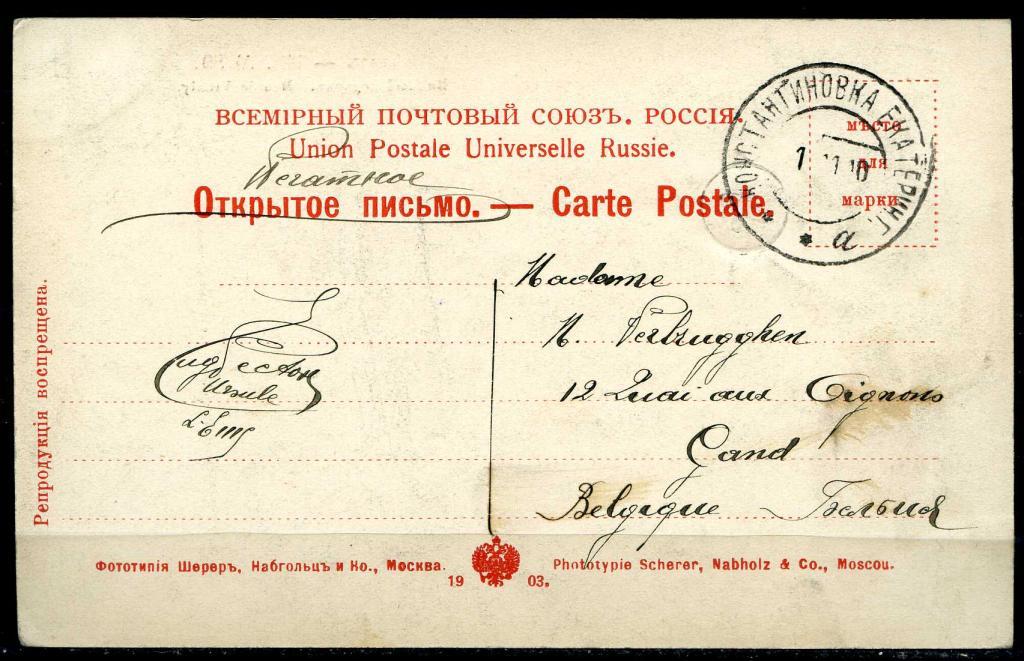 ВСЕМІРНЫЙ ПОЧТОВЫЙ СОЮЗЪ. РОССІЯ.
Union Postale Universelle Russie.
Печатное
Открытое письмо. — Carte Postale.
КОНСТАНТИНОВКА ЕКАТЕРИН.
* а *
мѣсто
для
марки
Madame
N. Verbrugghen
12 Quai aux Oignons
Gand
Belgique Бельгія
Ursule
Репродукція воспрещена.
Фототипія Шереръ, Набгольцъ и Ко., Москва.
19 03.
Phototypie Scherer, Nabholz & Co., Moscou.